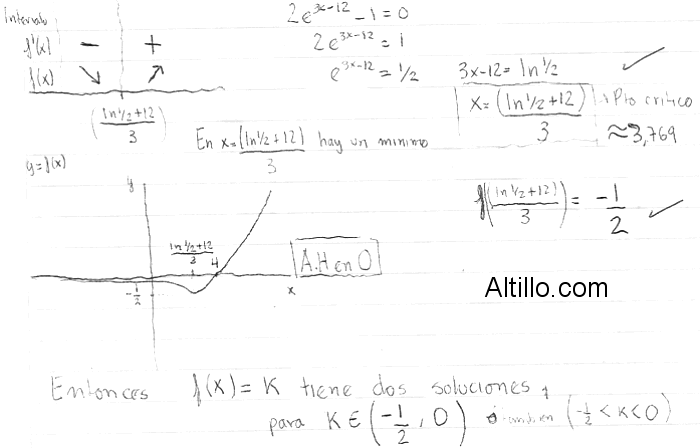 Intervalo
f'(x) − +
f(x) ↘ ↗
(ln 1/2 + 12)/3
2e^{3x-12} - 1 = 0
2e^{3x-12} = 1
e^{3x-12} = 1/2
3x-12 = ln 1/2 ✓
x = (ln 1/2 + 12)/3 → Pto crítico
≈ 3,769
En x = (ln 1/2 + 12)/3 hay un minimo
f((ln 1/2 + 12)/3) = -1/2 ✓
y = f(x)
y
(ln 1/2 + 12)/3
4
-1/2
x
A.H en 0
Altillo.com
Entonces f(x) = K tiene dos soluciones
para K ∈ (-1/2, 0) (-1/2 < K < 0)